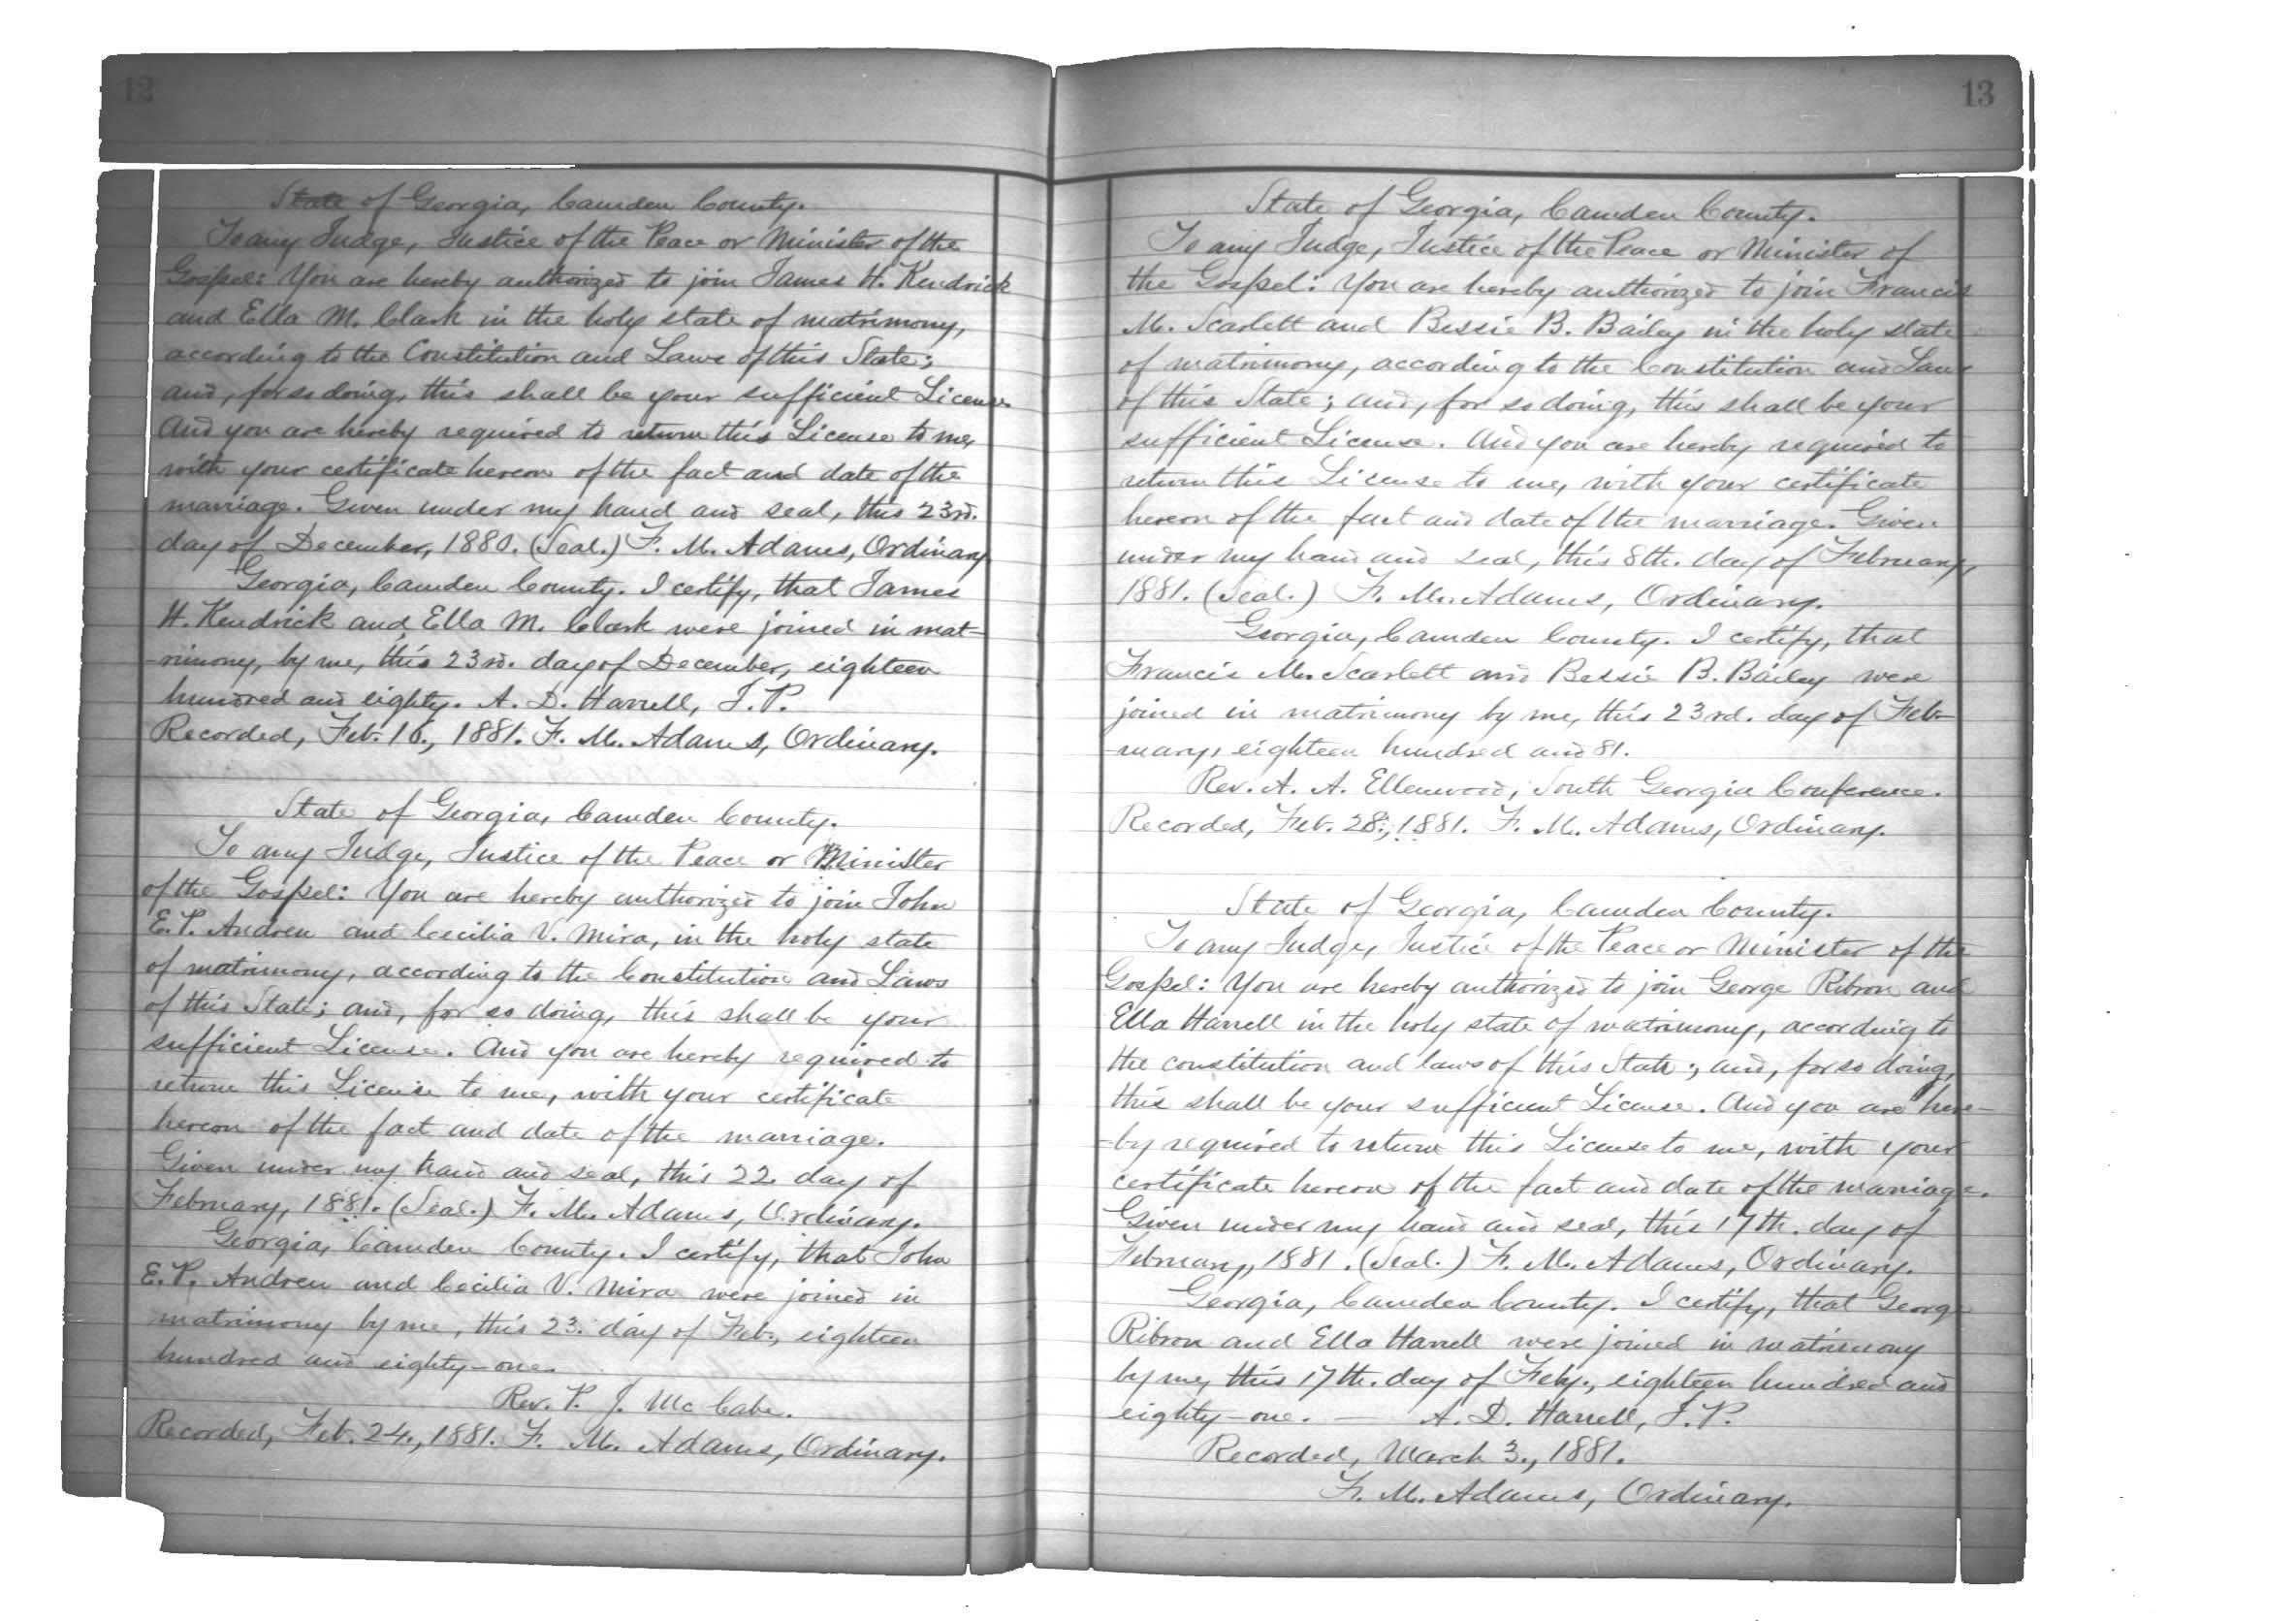 12
State of Georgia, Camden County.
To any Judge, Justice of the Peace or Minister of the
Gospel: You are hereby authorized to join James H. Kendrick
and Ella M. Clark in the holy state of matrimony,
according to the Constitution and Laws of this State;
and, for so doing, this shall be your sufficient License
And you are hereby required to return this License to me,
with your certificate hereon of the fact and date of the
marriage. Given under my hand and seal, this 23rd.
day of December, 1880. (Seal.) F. M. Adams, Ordinary
Georgia, Camden County. I certify, that James
H. Kendrick and Ella M. Clark were joined in mat-
-rimony, by me, this 23rd. day of December, eighteen
hundred and eighty. A. D. Harrell, J. P.
Recorded, Feb. 16., 1881. F. M. Adams, Ordinary.
State of Georgia, Camden County.
To any Judge, Justice of the Peace or Minister
of the Gospel: You are hereby authorized to join John
E. P. Andreu and Cecilia V. Mira, in the holy state
of matrimony, according to the Constitution and Laws
of this State; and, for so doing, this shall be your
sufficient License. And you are hereby required to
return this License to me, with your certificate
hereon of the fact and date of the marriage.
Given under my hand and seal, this 22 day of
February, 1881. (Seal.) F. M. Adams, Ordinary.
Georgia, Camden County. I certify, that John
E. P. Andreu and Cecilia V. Mira were joined in
matrimony by me, this 23. day of Feb., eighteen
hundred and eighty-one.
Rev. P. J. McCabe.
Recorded, Feb. 24., 1881. F. M. Adams, Ordinary.
13
State of Georgia, Camden County.
To any Judge, Justice of the Peace or Minister of
the Gospel: You are hereby authorized to join Francis
M. Scarlett and Bessie B. Bailey in the holy state
of matrimony, according to the Constitution and Laws
of this State; and, for so doing, this shall be your
sufficient License. And you are hereby required to
return this License to me, with your certificate
hereon of the fact and date of the marriage. Given
under my hand and seal, this 8th. day of February,
1881. (Seal.) F. M. Adams, Ordinary.
Georgia, Camden County. I certify, that
Francis M. Scarlett and Bessie B. Bailey were
joined in matrimony by me, this 23rd. day of Feb-
-ruary, eighteen hundred and 81.
Rev. A. A. Ellenwood, South Georgia Conference.
Recorded, Feb. 28., 1881. F. M. Adams, Ordinary.
State of Georgia, Camden County.
To any Judge, Justice of the Peace or Minister of the
Gospel: You are hereby authorized to join George Ribron and
Ella Harrell in the holy state of matrimony, according to
the constitution and laws of this State; and, for so doing,
this shall be your sufficient License. And you are here-
-by required to return this License to me, with your
certificate hereon of the fact and date of the marriage.
Given under my hand and seal, this 17th. day of
February, 1881. (Seal.) F. M. Adams, Ordinary.
Georgia, Camden County. I certify, that George
Ribron and Ella Harrell were joined in matrimony
by me, this 17th. day of Feby., eighteen hundred and
eighty-one. — A. D. Harrell, J. P.
Recorded, March 3., 1881.
F. M. Adams, Ordinary.